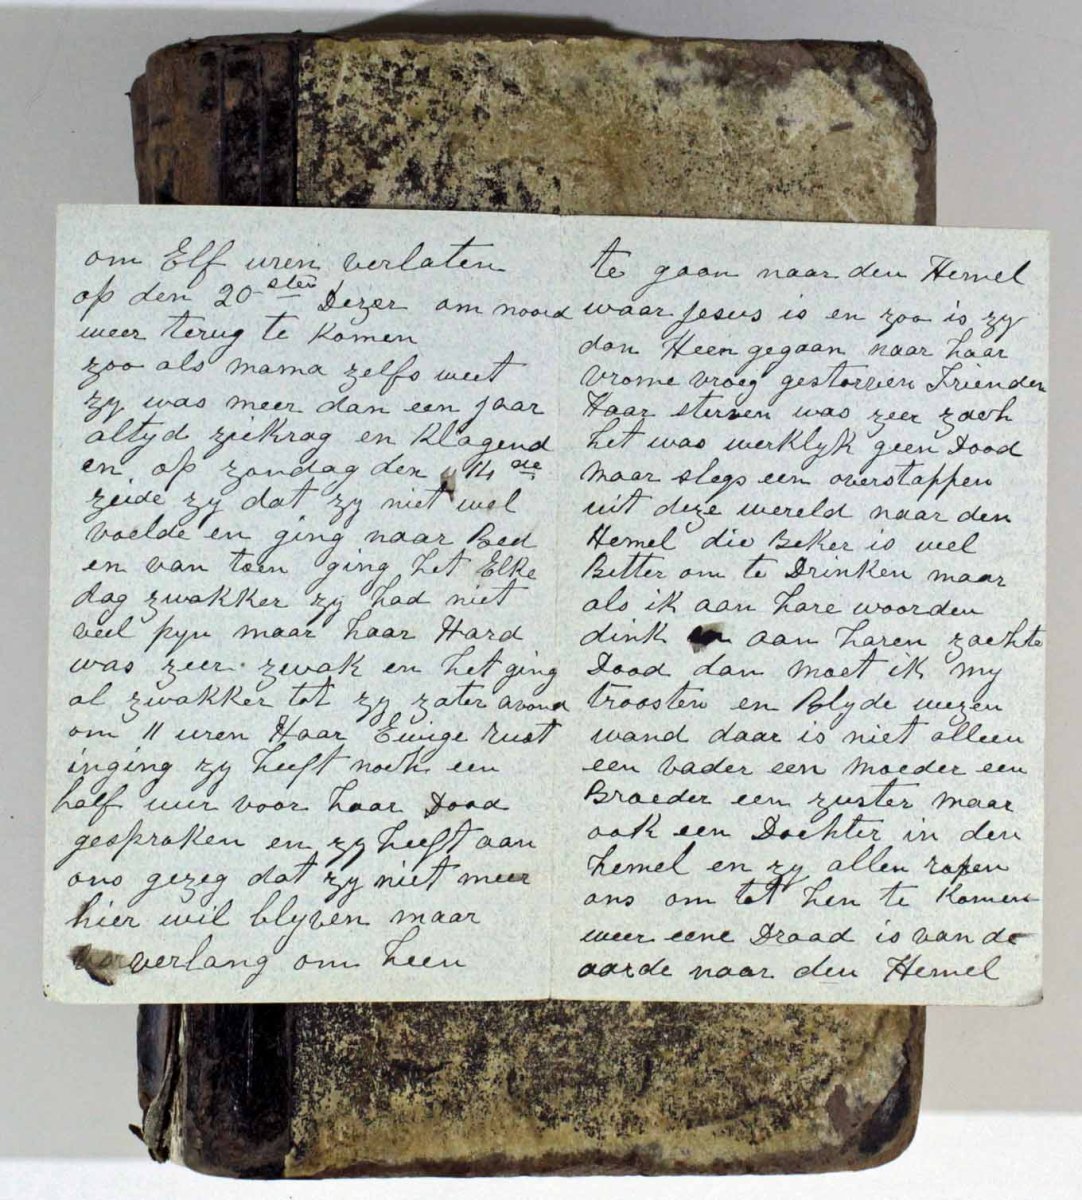 om Elf uren verlaten
op den 20sten Dezer om nooid
weer terug te Komen
zoo als mama zelfs weet
zy was meer dan een jaar
altyd ziekrag en Klagend
en op zondag den 14de
zeide zy dat zy niet wel
voelde en ging naar Bed
en van toen ging het Elke
dag zwakker zy had niet
veel pyn maar haar Hard
was zeer zwak en het ging
al zwakker tot zy zater avond
om 11 uren Haar Ewige rust
inging zy heeft noch een
half uur voor haar Dood
gesproken en zy heeft aan
ons gezeg dat zy niet meer
hier wil blyven maar
verlang om heen
te gaan naar den Hemel
waar Jesus is en zoo is zy
dan Heen gegaan naar haar
vrome vroeg gestorven Frienden
Haar sterven was zeer zach
het was werklyk geen Dood
maar slegs een overstappen
uit deze wereld naar den
Hemel die Beker is veel
Better om te Drinken maar
als ik aan hare woorden
dink aan haren zachte
Dood dan moet ik my
troosten en Blyde wezen
wand daar is niet alleen
een vader een moeder een
Broeder een zuster maar
ook een Dochter in den
hemel en zy allen ropen
ons om tot hen te Komen
weer eene Draad is van de
aarde naar den Hemel